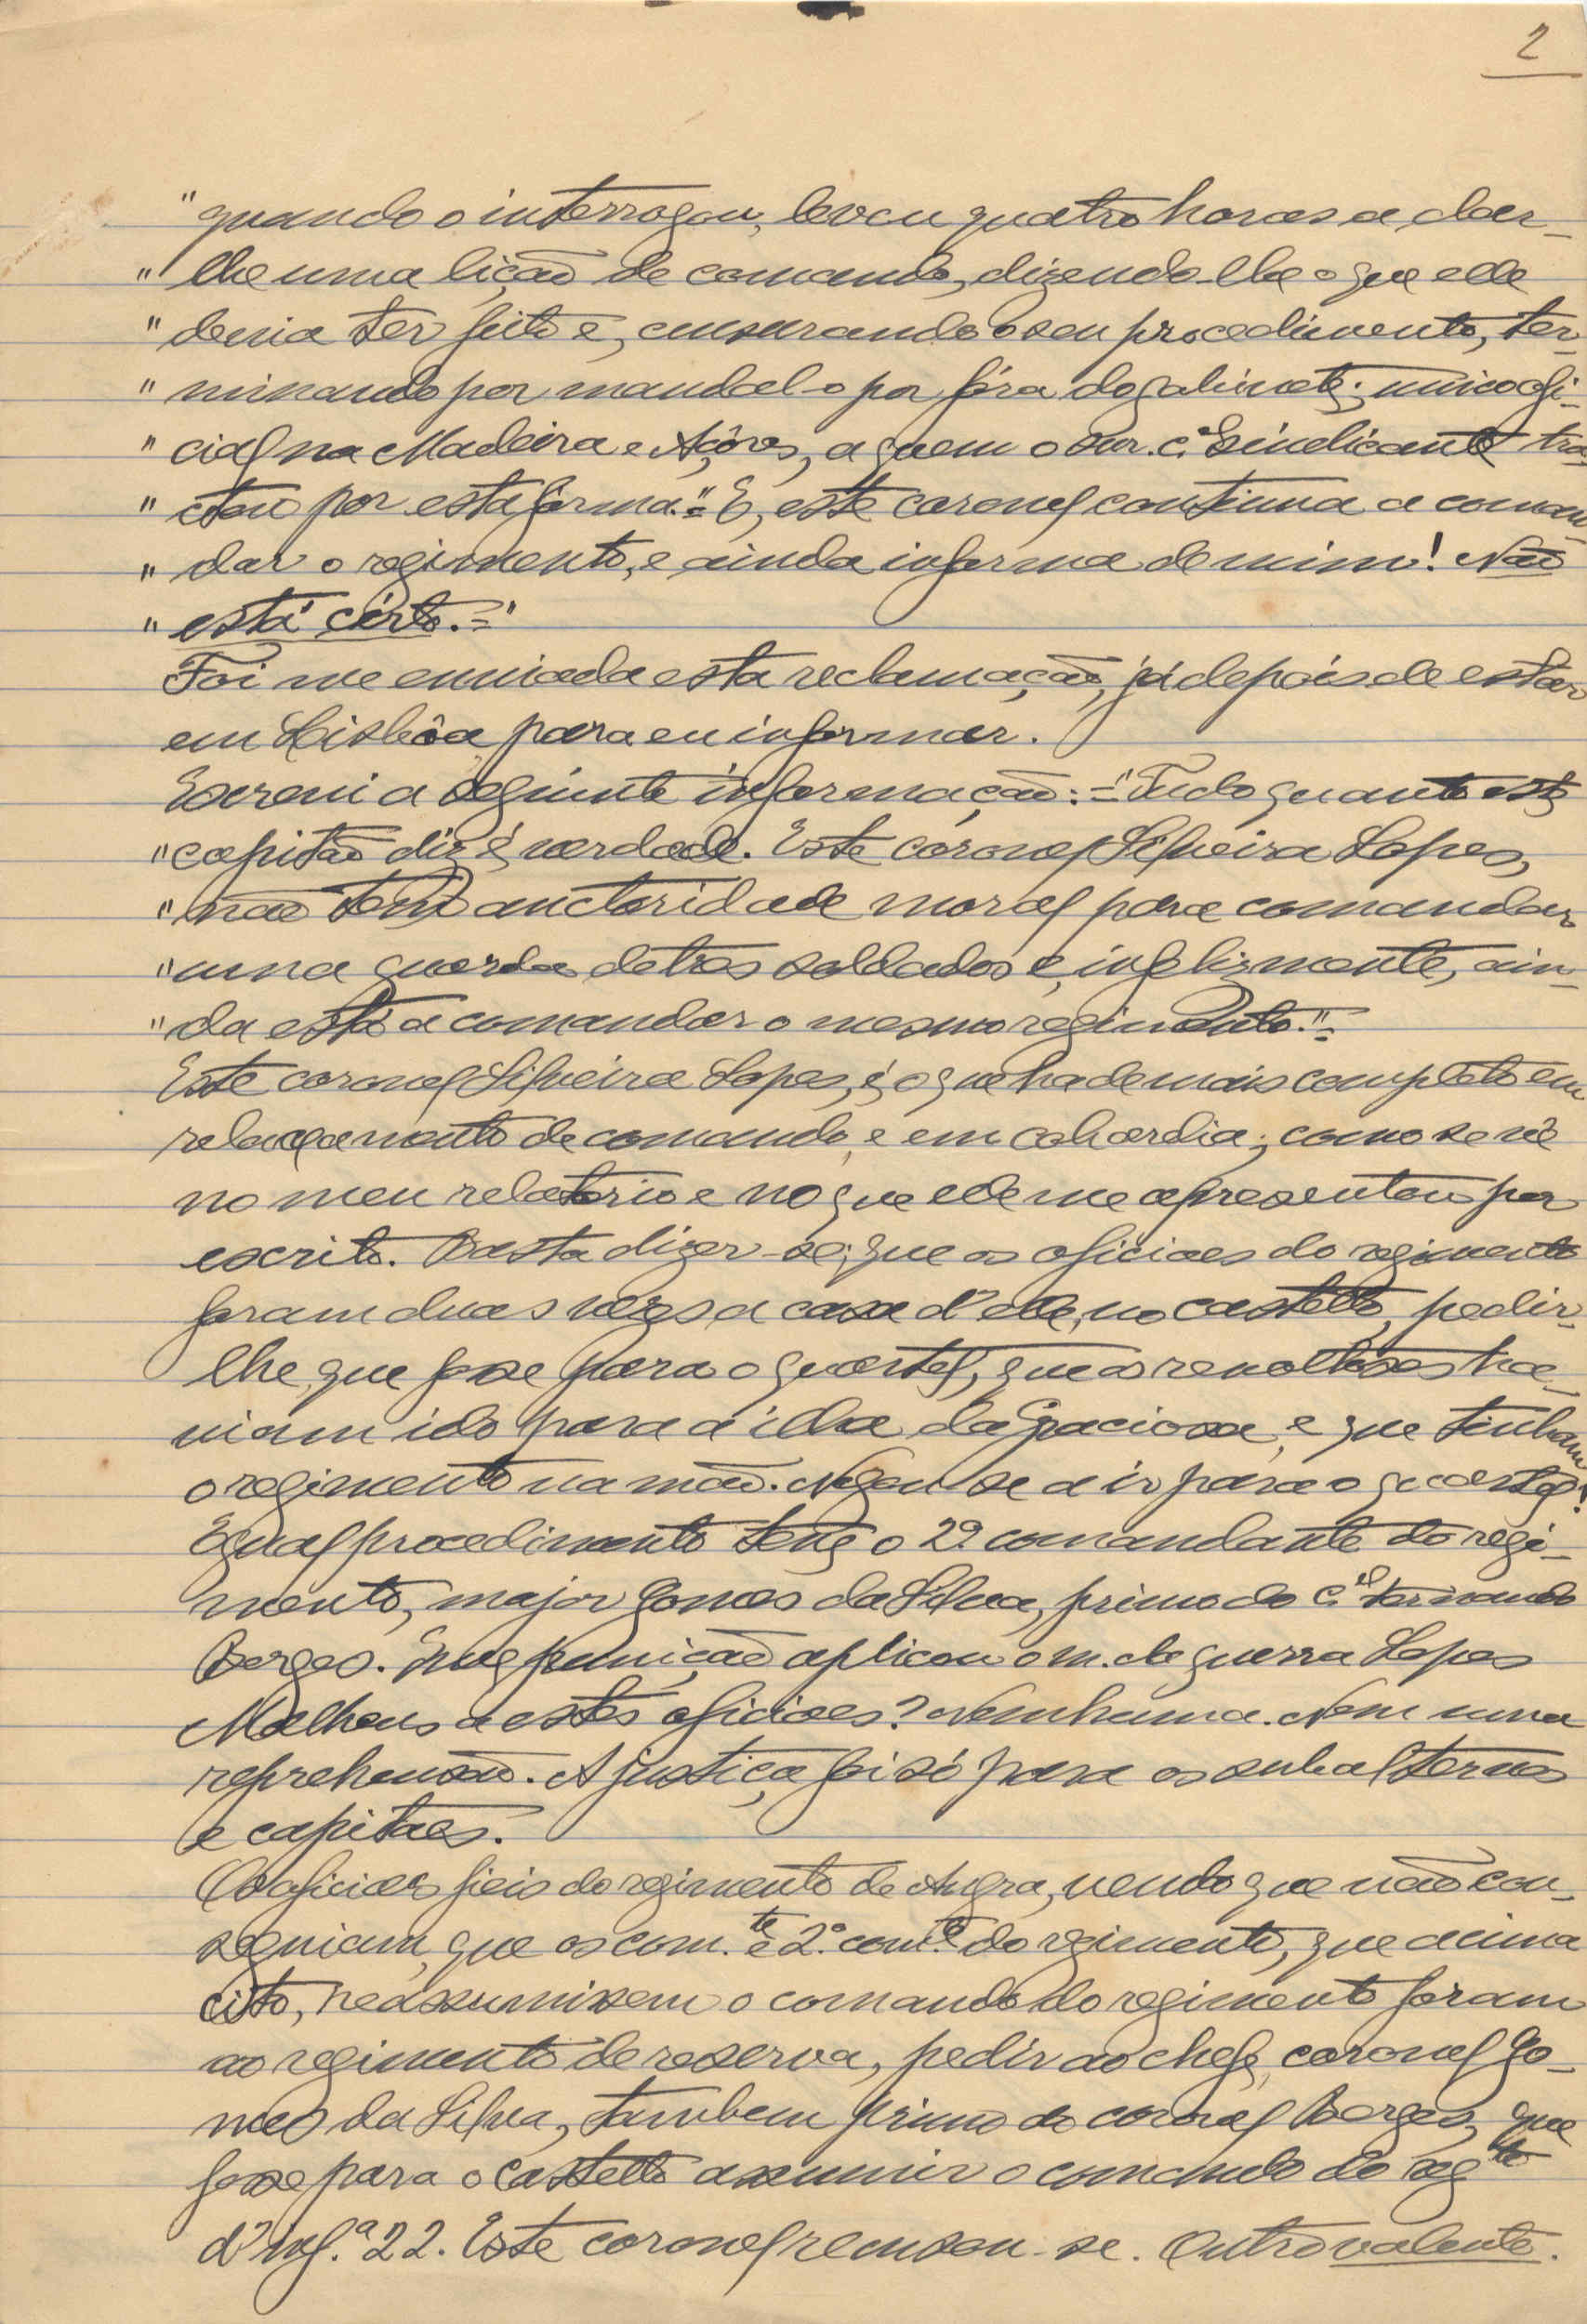 2
"quando o interrogou, levou quatro horas a dar-
" lhe uma lição de comando, dizendo-lhe o que elle
" devia ter feito e, censurando o seu procedimento, ter-
" minando por mandal-o por fóra do gabinete; unico ofi-
" cial na Madeira e Açôres, a quem o snr. c.el sindicante tra-
" ctou por esta forma."= E, este coronel continua a coman-
" dar o regimento, e ainda informa de mim! Não
" está cérto.="
Foi me enviada esta reclamação, já depois de estar
em Lisbôa para eu informar.
Escrevi a seguinte informação:="Tudo quanto este
"capitão diz é verdade. Este coronel Silveira Lopes,
" não tem auctoridade moral para comandar
"uma guarda de tres soldados e, infelizmente, ain-
"da está a comandar o mesmo regimento."=
Este coronel Silveira Lopes, é o que ha de mais completo em
relaxamento de comando, e em cobardia; como se vê
no meu relatorio e no que elle me apresentou por
escrito. Basta dizer-se, que os oficiaes do regimento
foram duas vezes a casa d'elle, no castello, pedir-
lhe que fosse para o quartel, que os revoltosos ha-
viam ido para a ilha da Graciosa, e que tinham
o regimento na mão. Negou se a ir para o quartel!
Egual procedimento teve o 2º comandante do regi-
mento, major Gomes da Silva, primo do c.el Fernando
Borges. Que punição aplicou o m. de guerra Lopes
Matheus a estes oficiaes? Nenhuma. Nem uma
reprehensão. A justiça foi só para os subalternos
e capitães.
Os oficiaes fieis do regimento de Angra, vendo que não con-
seguiam, que os com.te e 2.º com.te do regimento, que acima
cito, reassumissem o comando do regimento foram
ao regimento de reserva, pedir ao chefe, coronel Go-
mes da Silva, tambem primo do coronel Borges, que
fosse para o castello assumir o comando do reg.to
d'inf.ª 22. Este coronel recusou-se. Outro valente.